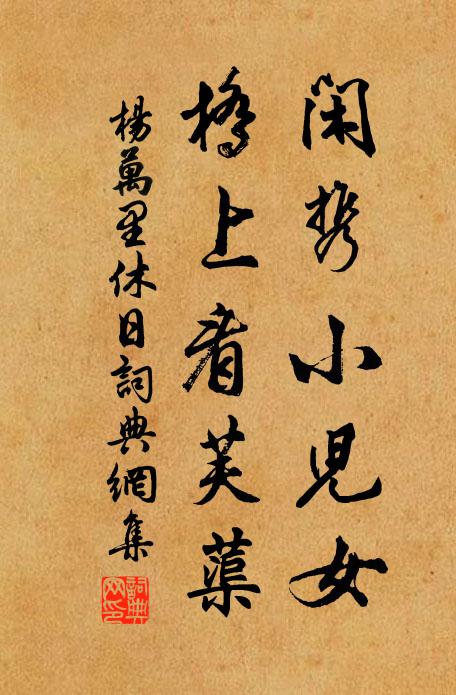 閑携小児女
橋上看芙蕖
楊萬里休日詞典網集
詞典
网印